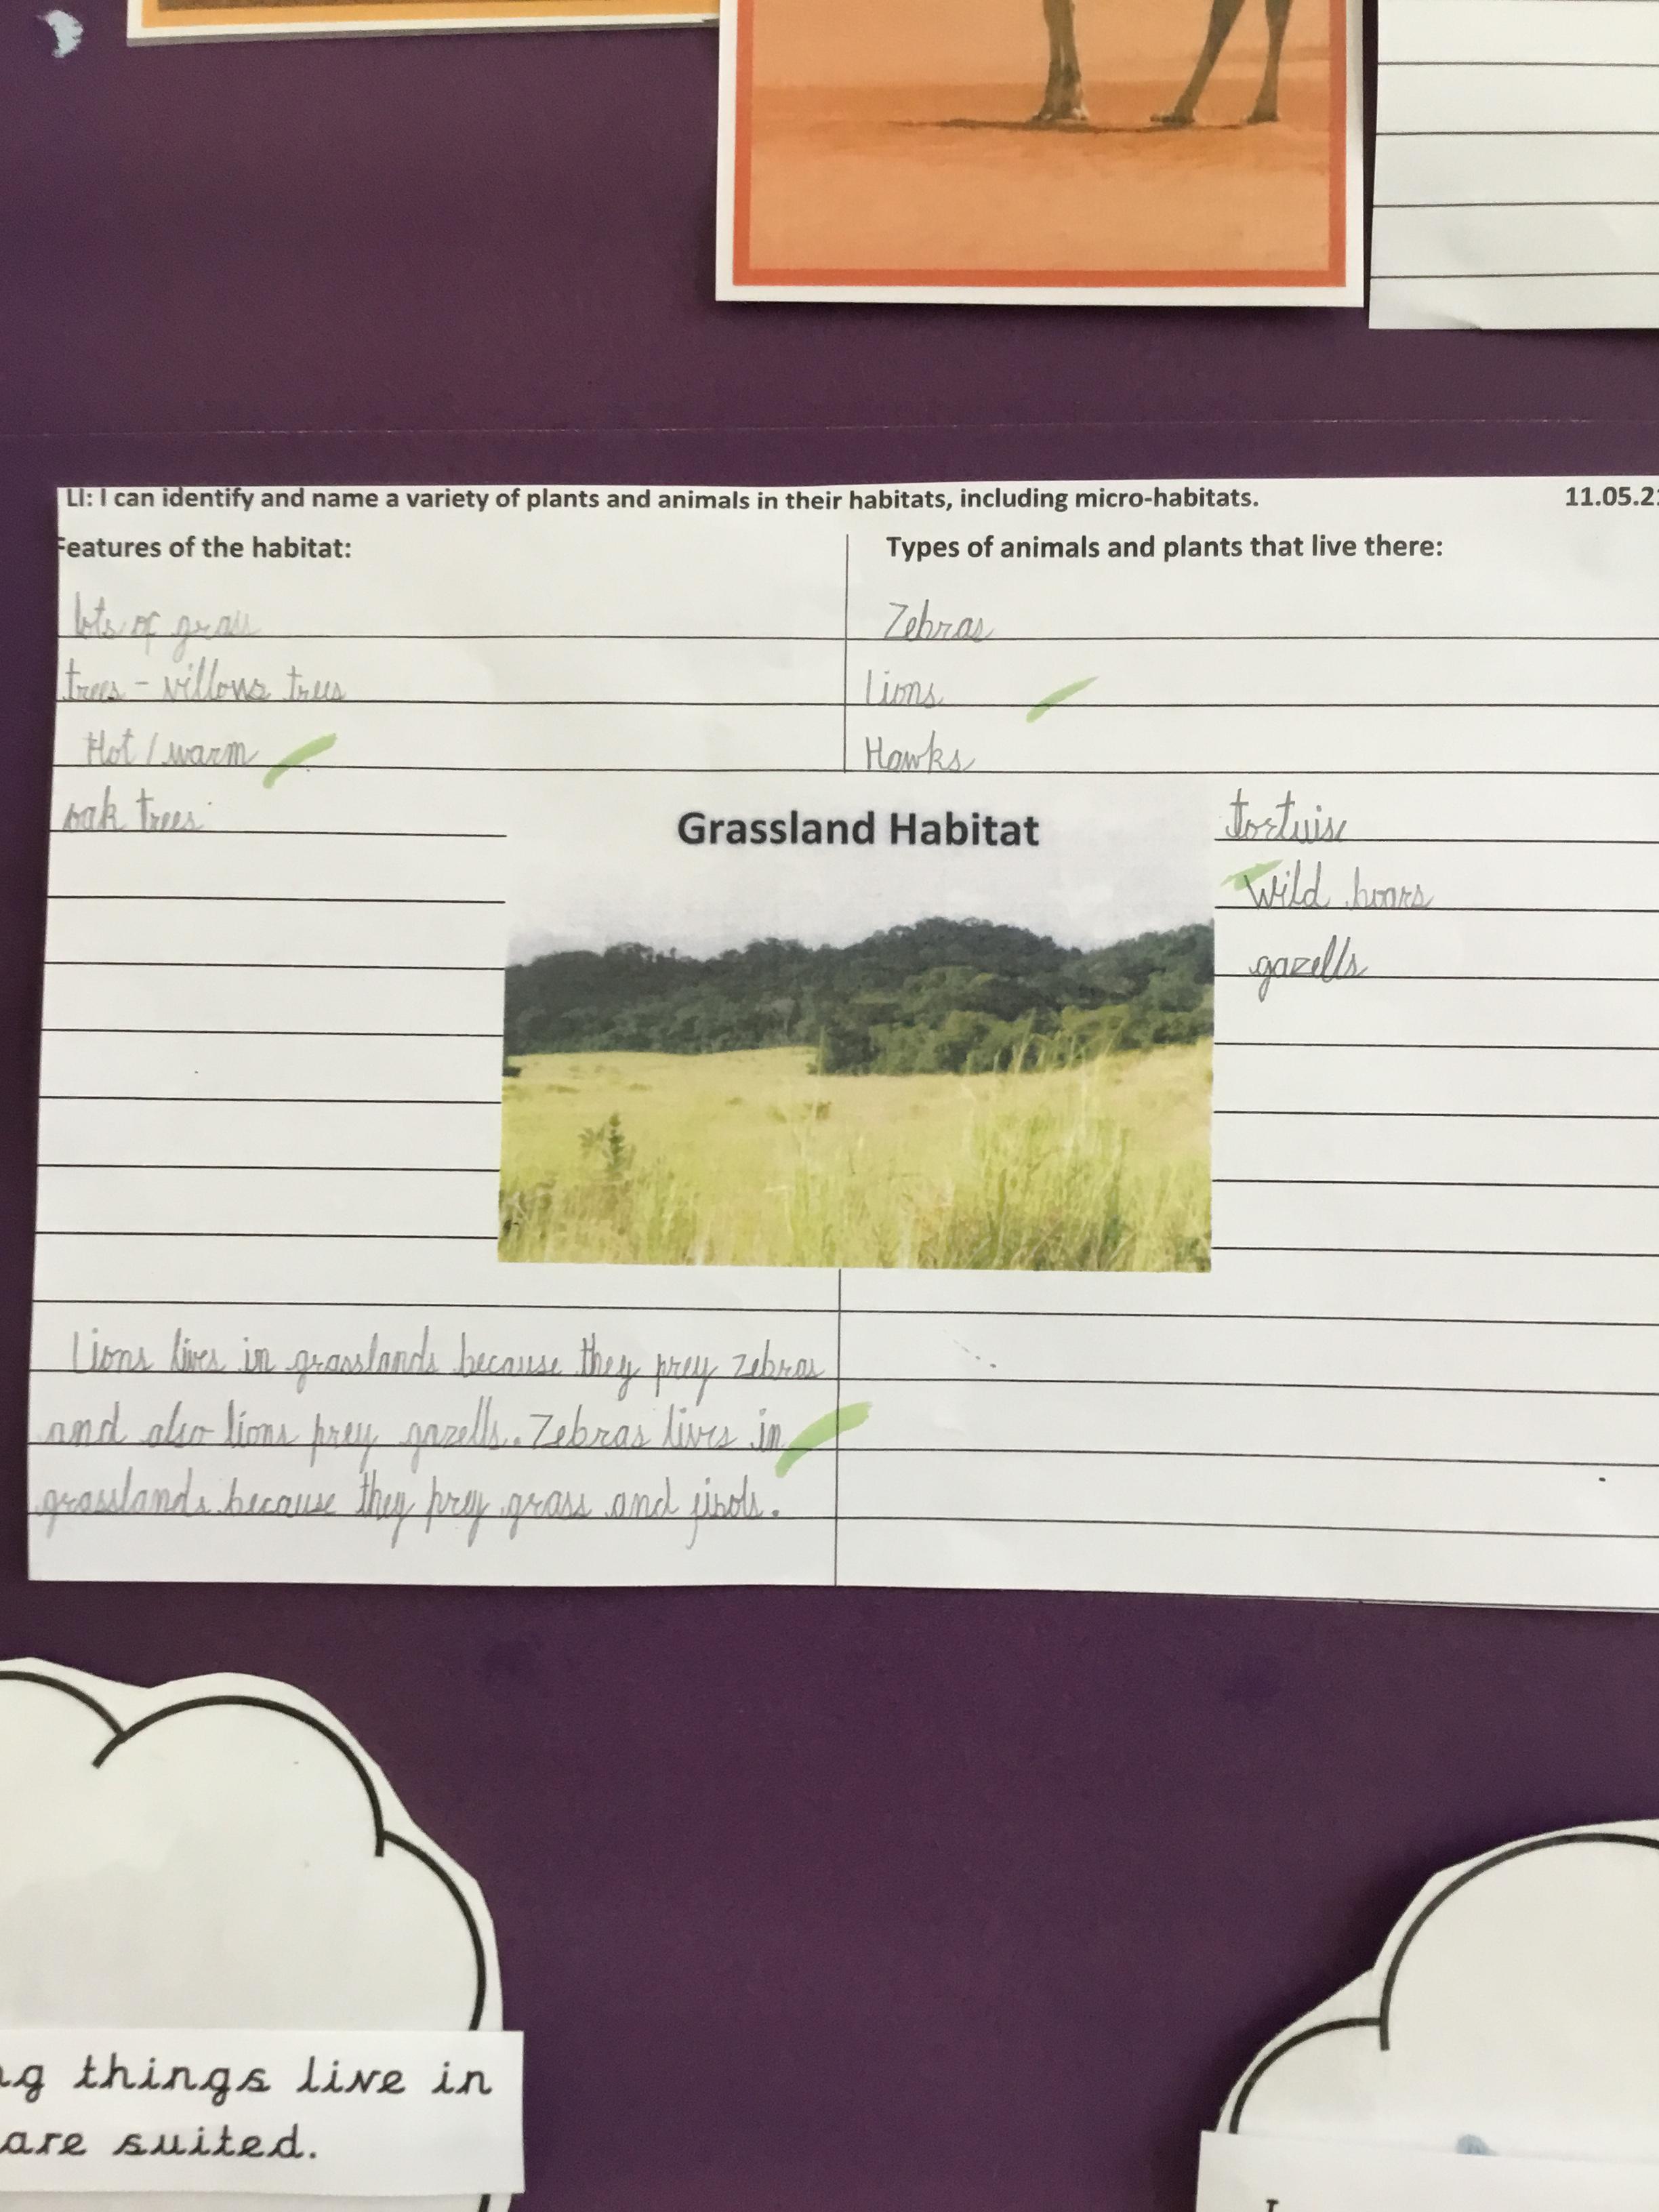 LI: I can identify and name a variety of plants and animals in their habitats, including micro-habitats. 11.05.21
Features of the habitat:
lots of grass
trees - villows trees
Hot / warm
oak trees
Types of animals and plants that live there:
Zebras
Lions
Hawks
tortuise
Wild boars
gazells
Grassland Habitat
Lions lives in grasslands because they prey zebras
and also lions prey gazells. Zebras lives in
grasslands because they prey grass and
things live in
are suited.